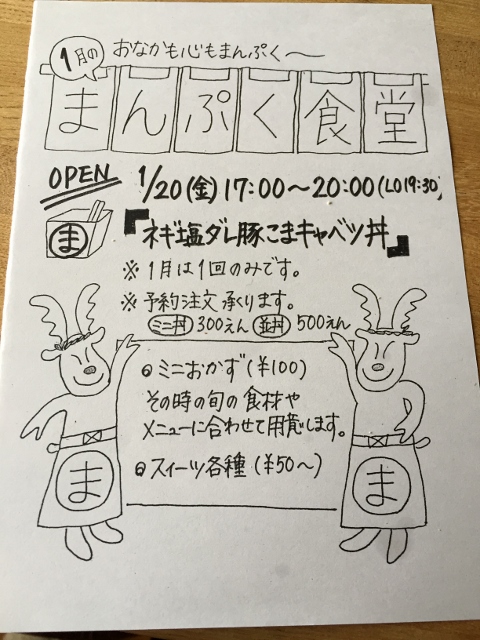 1月の
おなかも心もまんぷく〜
まんぷく食堂
OPEN 1/20(金)17:00〜20:00(LO19:30)
ま
『ネギ塩ダレ豚こまキャベツ丼』
※1月は1回のみです。
※予約注文承ります。
ミニ丼 300えん 並丼 500えん
●ミニおかず(¥100)
その時の旬の食材や
メニューに合わせて用意します。
●スイーツ各種(¥50〜)
ま
ま